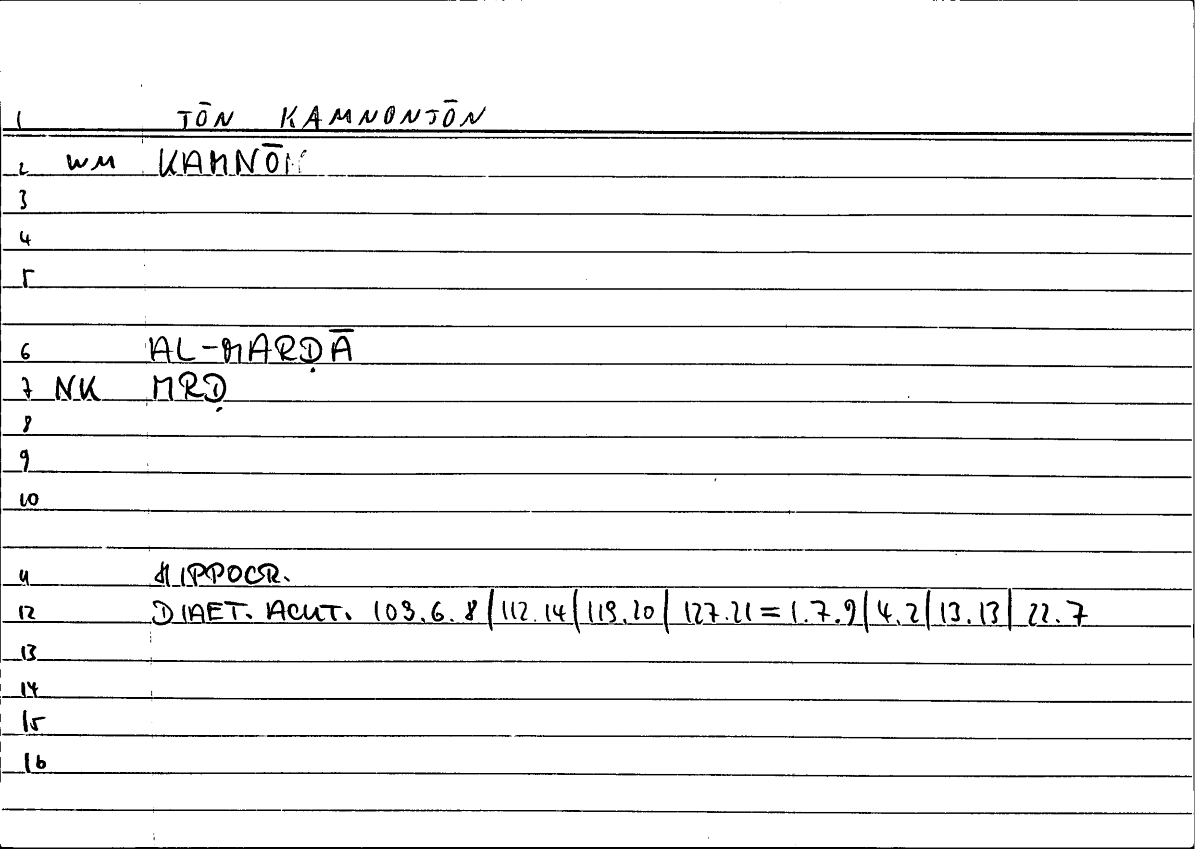 1 TŌN KAMNONTŌN
2 WM KAMNŌN
3
4
5
6 AL-MARḌĀ
7 NK MRḌ
8
9
10
11 HIPPOCR.
12 DIAET. ACUT. 109.6.8|112.14|119.20|127.21=1.7.9|4.2|13.13|22.7
13
14
15
16